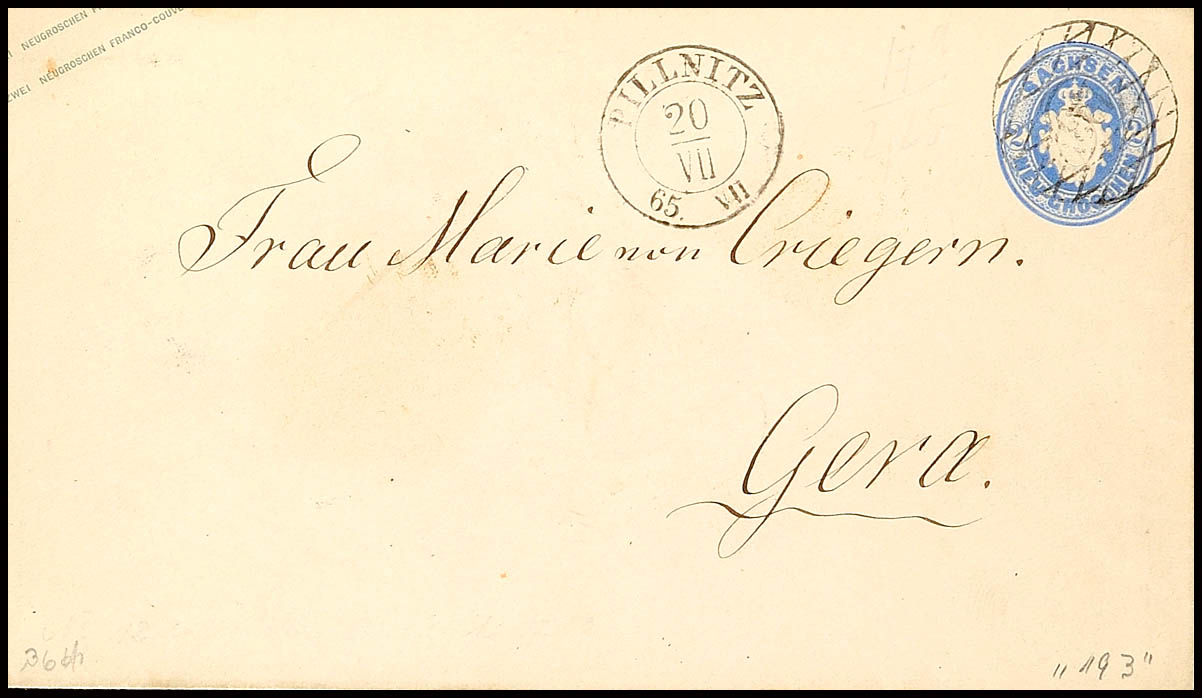 NEUGROSCHEN
ZWEI NEUGROSCHEN FRANCO-COUVE
PILLNITZ
20
VII
65. VII
SACHSEN
2 2
NEU-GROSCHEN
Frau Marie von Criegern.
Gera.
"193"